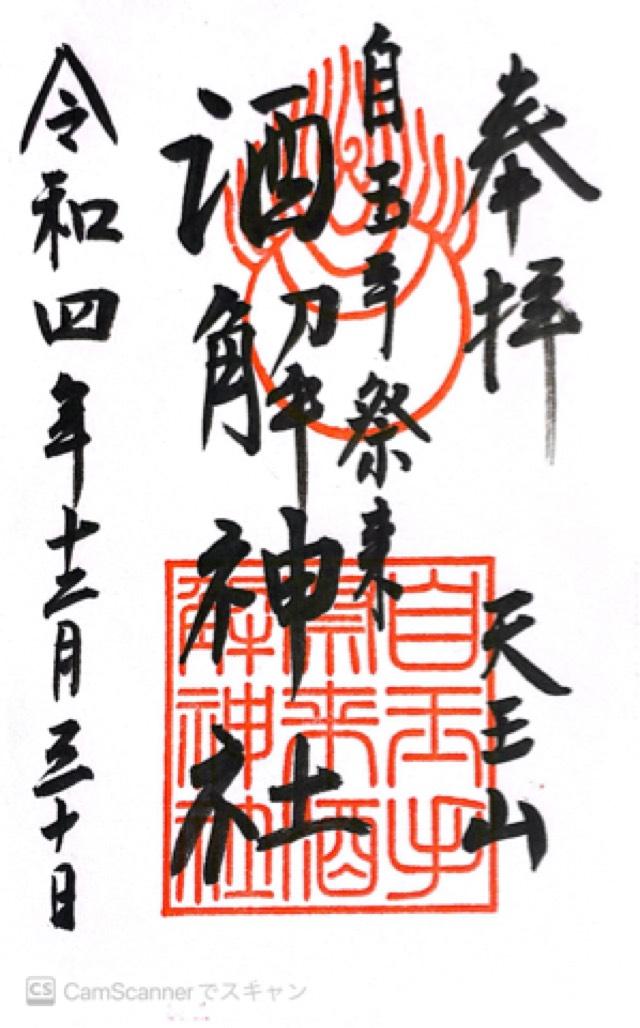 奉拝
天王山
自玉手祭来
酒解神社
令和四年十二月三十日
自玉手
祭来酒
解神社
CS CamScannerでスキャン